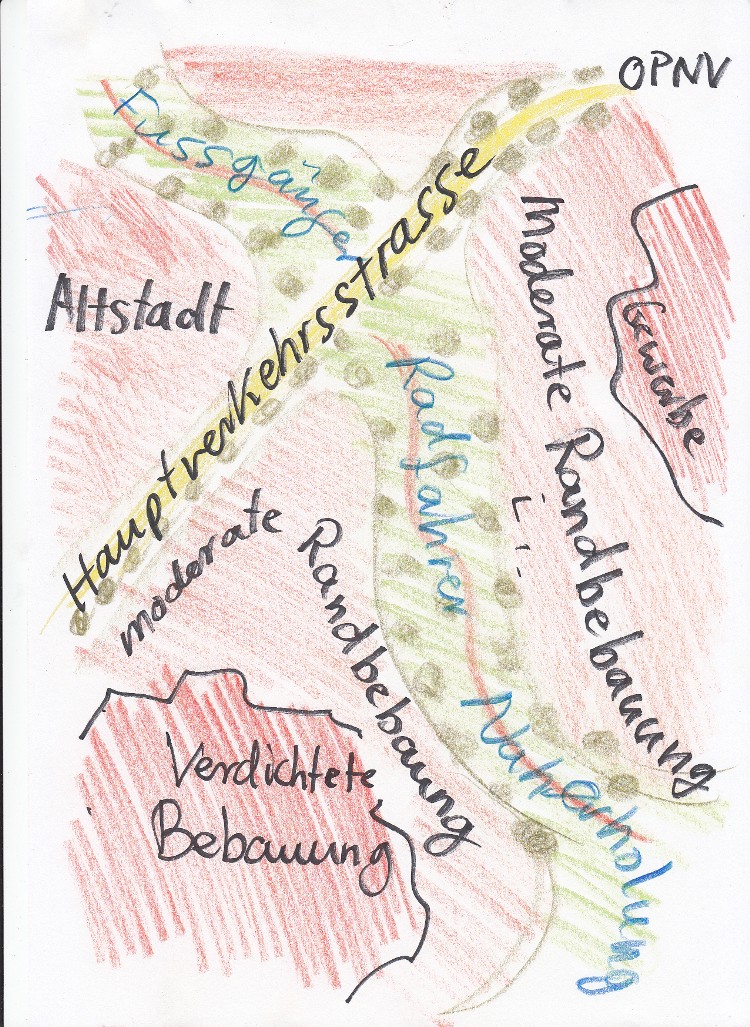 OPNV
Fussgänger
Hauptverkehrsstrasse
Altstadt
Moderate Randbebauung
Gewerbe
Radfahrer
moderate Randbebauung
Naherholung
Verdichtete
Bebauung